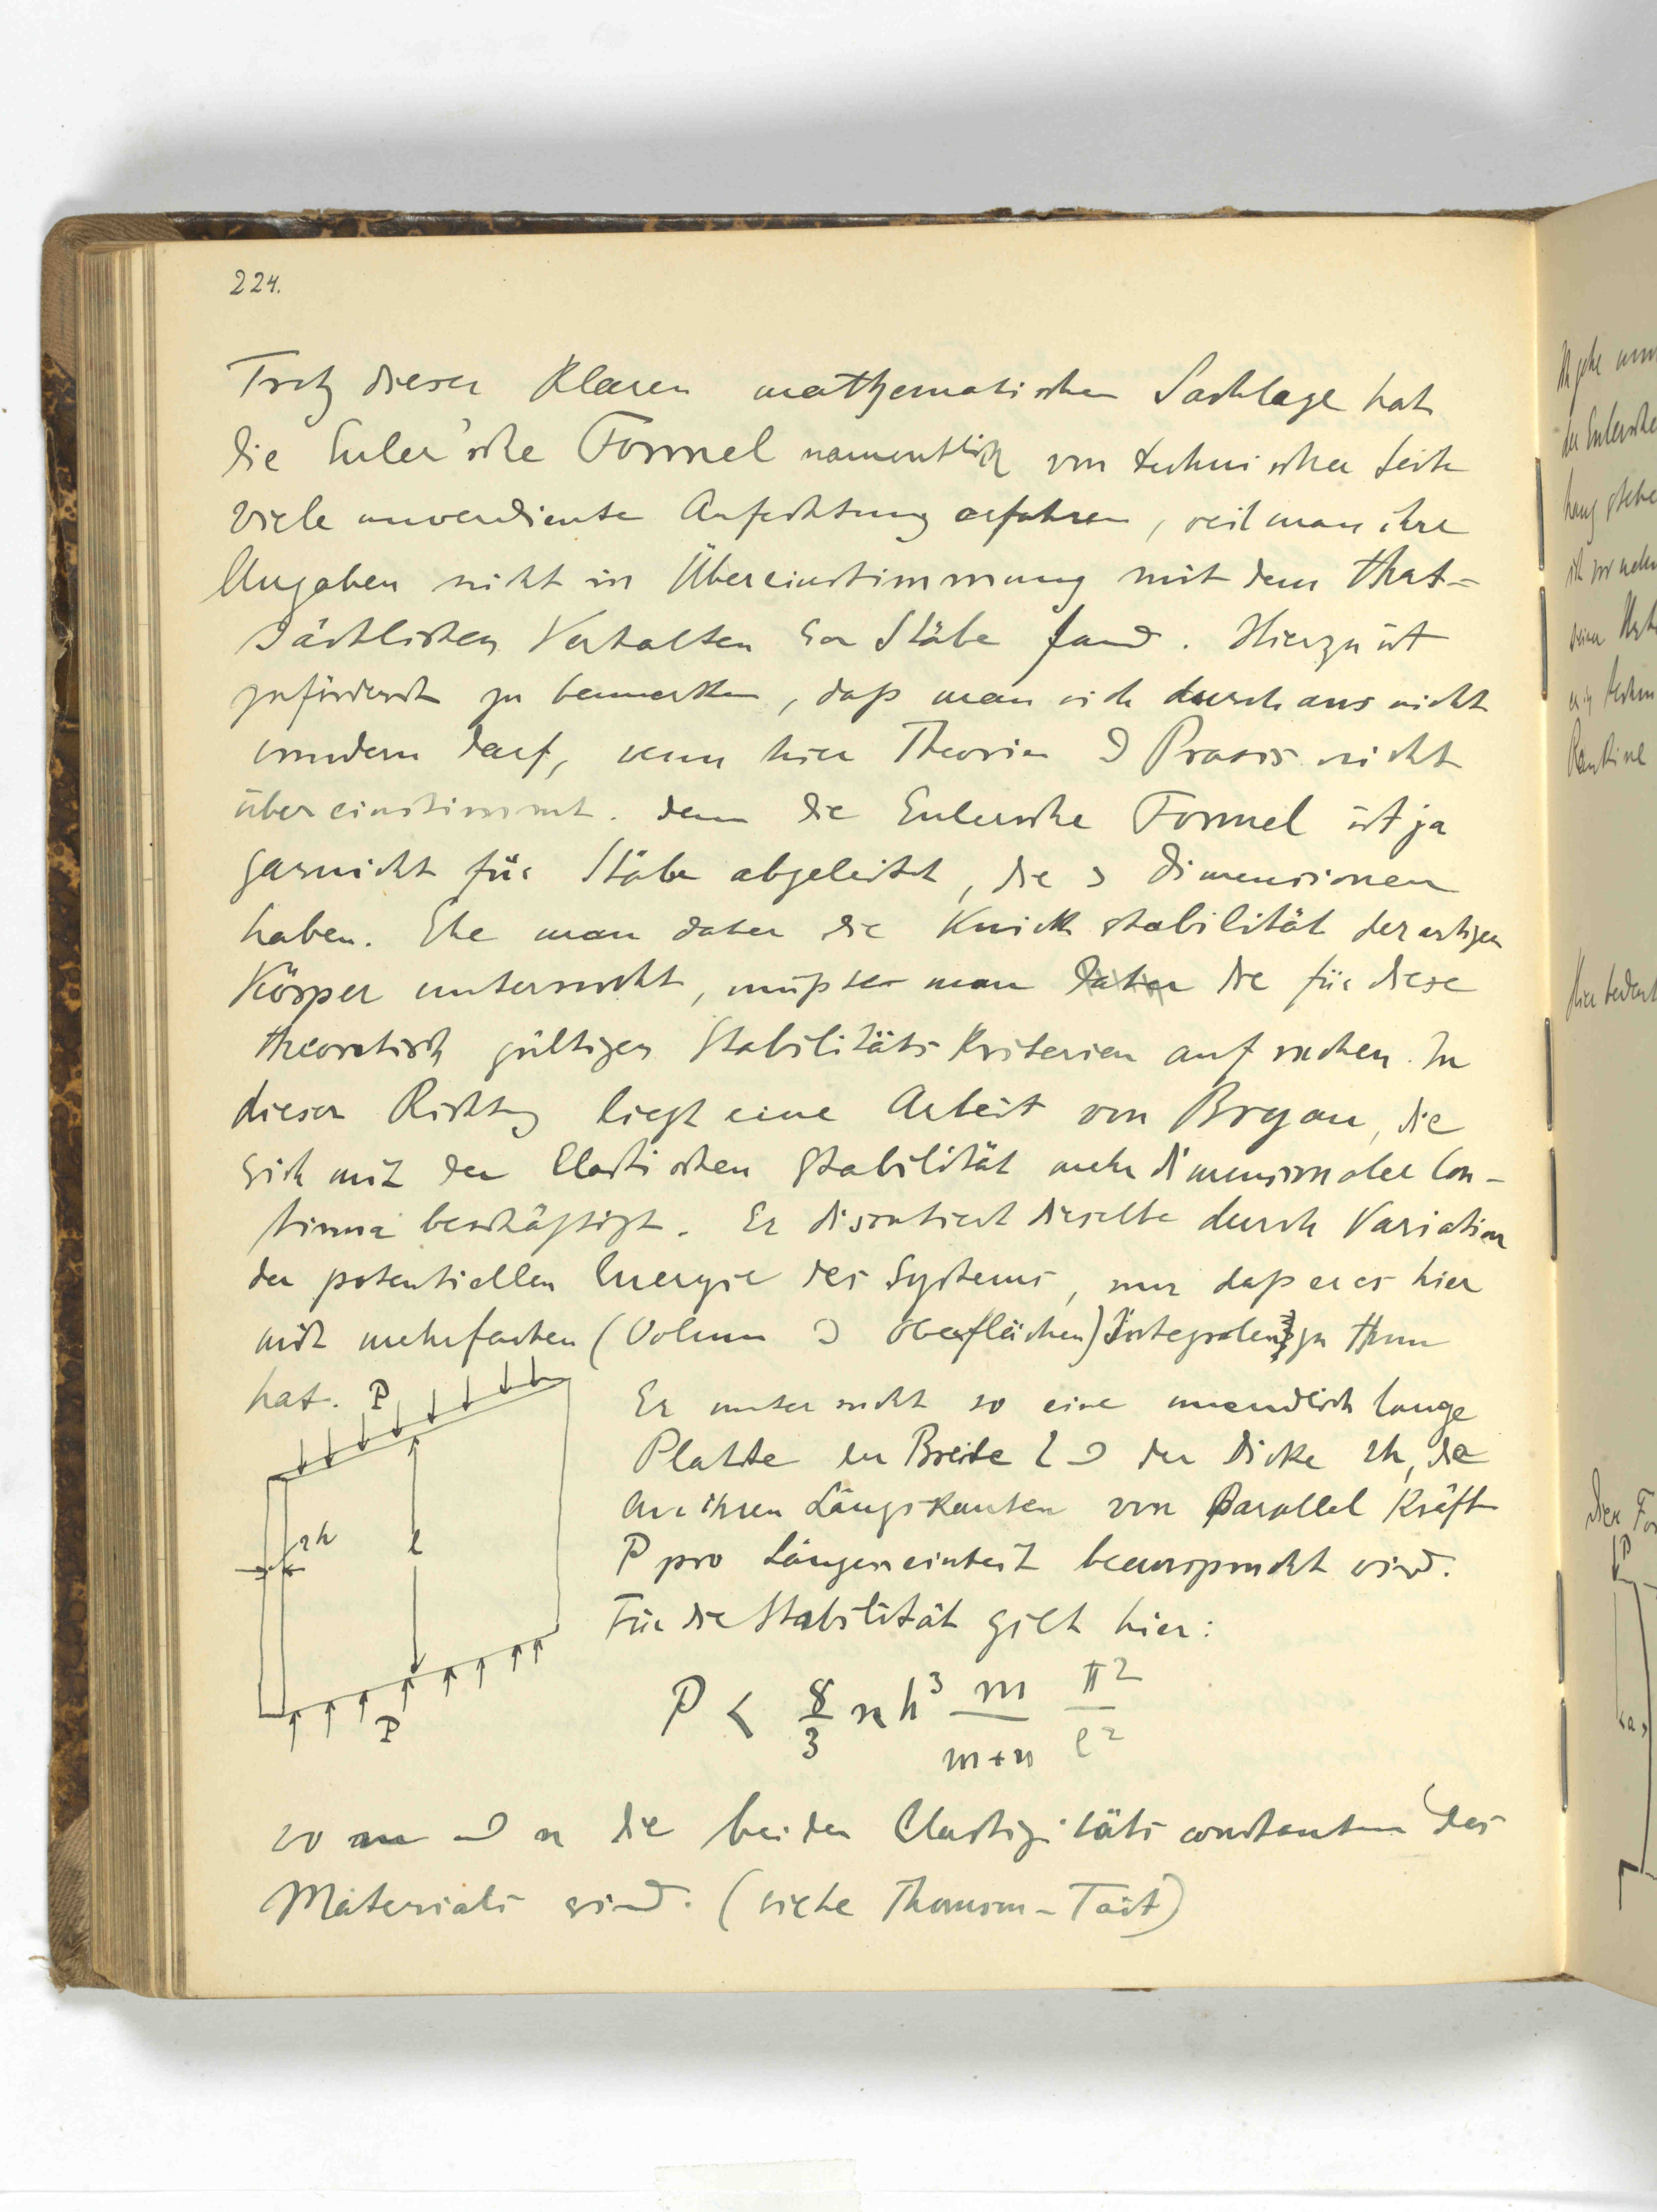 224.
Trotz dieser klaren mathematischen Sachlage hat
die Euler'sche Formel namentlich von technischer Seite
viele unverdiente Anfechtung erfahren, weil man ihre
Angaben nicht in Übereinstimmung mit dem that-
sächlichen Verhalten der Stäbe fand. Hierzu ist
zuförderst zu bemerken, daß man sich durchaus nicht
wundern darf, wenn hier Theorie u Praxis nicht
übereinstimmt. denn die Eulersche Formel ist ja
garnicht für Stäbe abgeleitet, die 3 Dimensionen
haben. Ehe man daher die Knickstabilität derartiger
Körper untersucht, müßte man daher die für diese
theoretisch gültigen Stabilitäts Kriterien aufsuchen. In
dieser Richtung liegt eine Arbeit von Bryan, die
sich mit der elastischen Stabilität mehrdimensionaler Con-
tinua beschäftigt. Er discutiert dieselbe durch Variation
der potentiellen Energie des Systems, nur daß er es hier
mit mehrfachen (Volum u Oberflächen) Integralen zu thun
hat.
P
Er untersucht so eine unendlich lange
Platte der Breite l u der Dicke 2h, die
an ihren Längskanten von Parallel Kräften
P pro Längeneinheit beansprucht wird.
Für die Stabilität gilt hier:
2h
l
P
P < 8/3 n h³ m/(m+n) π²/l²
wo m und n die beiden Elastizitätsconstanten des
Materials sind. (siehe Thomson-Tait)
der Eulersche
Rankine
Hier bedeut
P